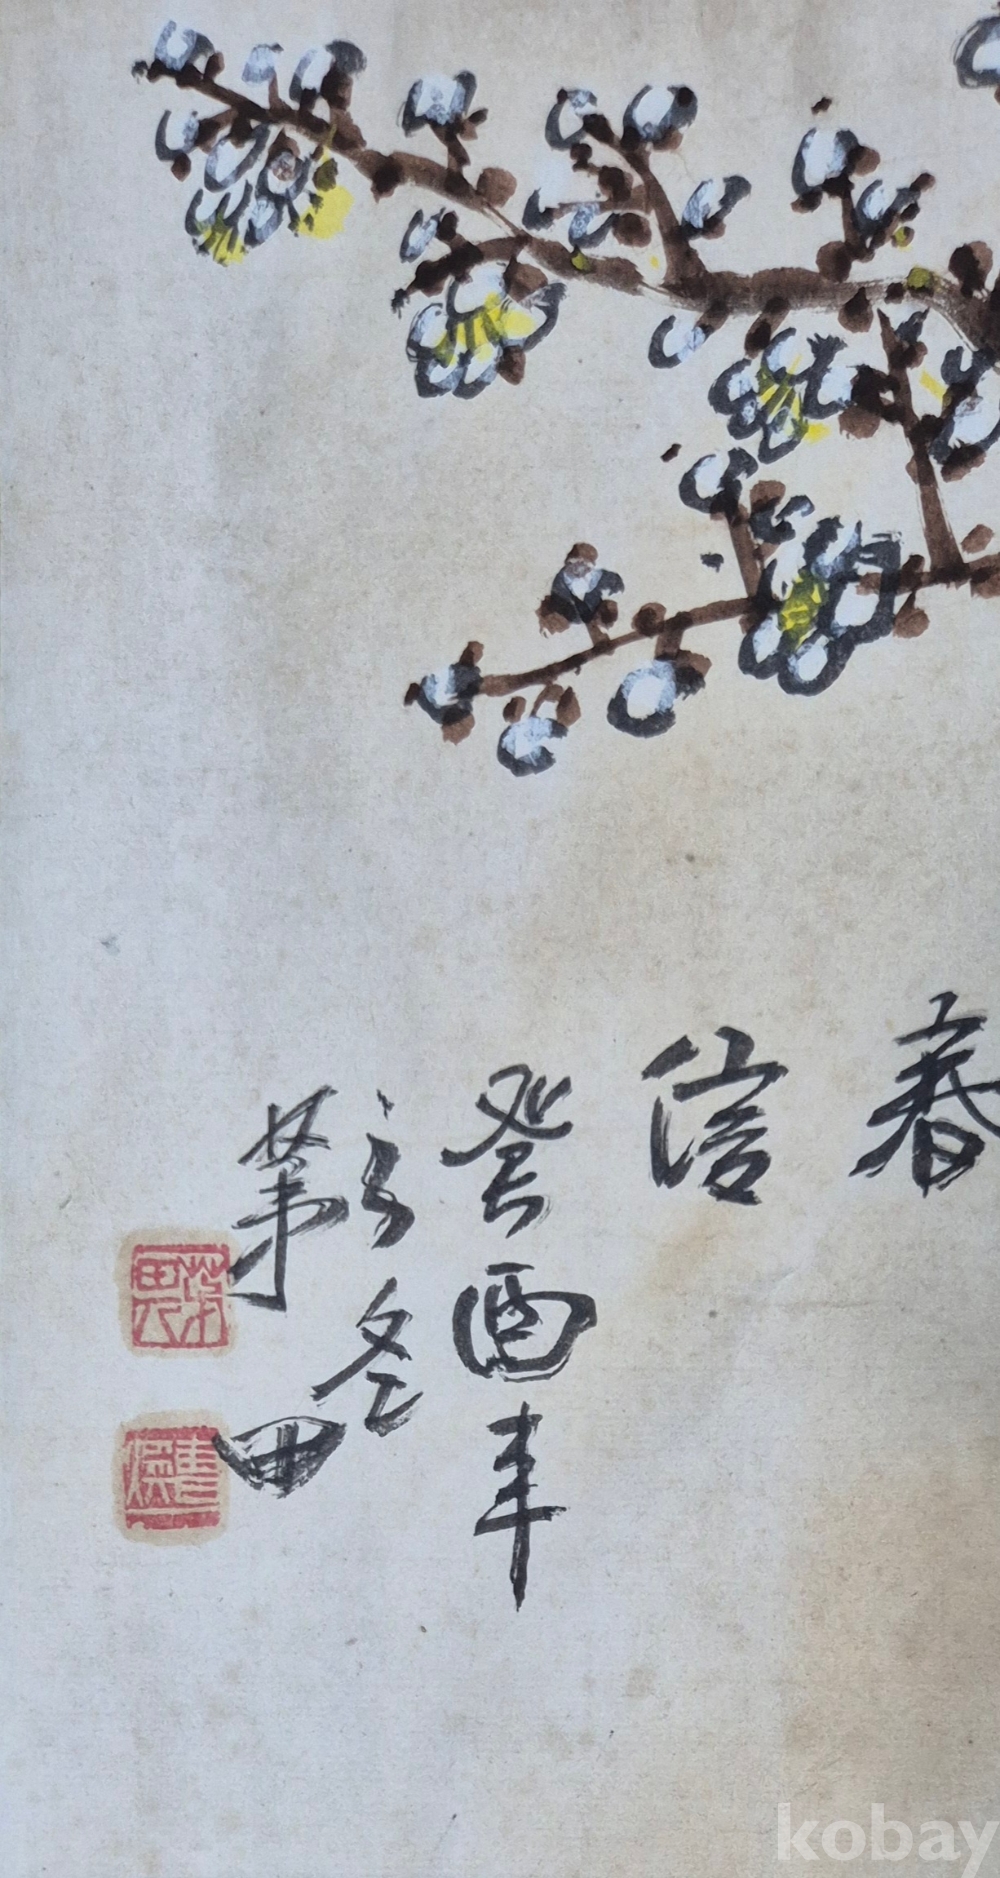 春
信
癸酉年
之冬
葦田
kobay